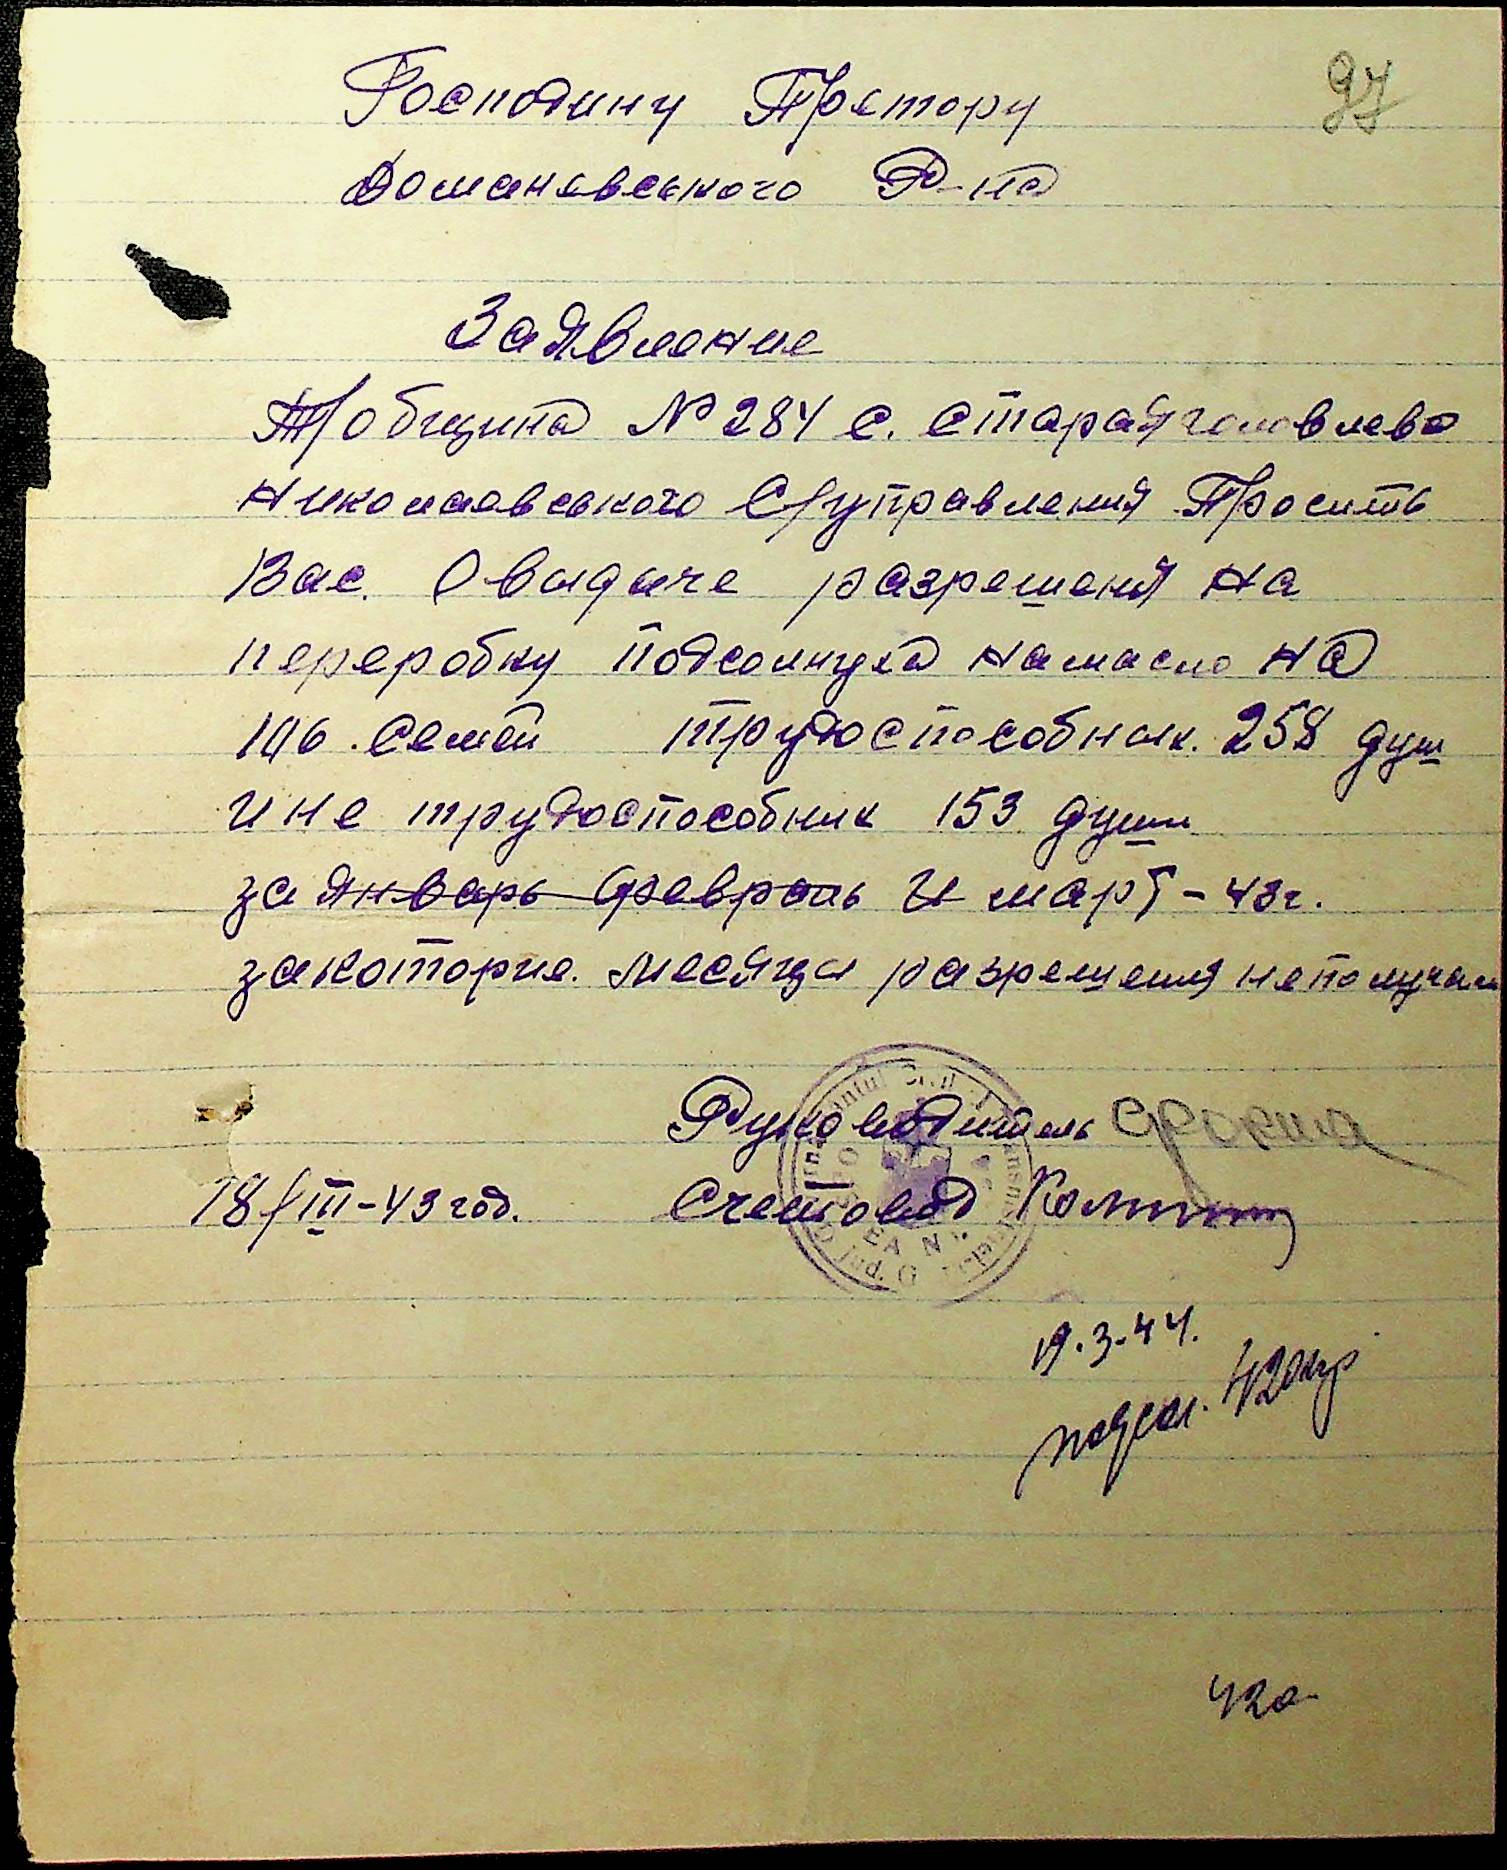 97
Господину Претору
Доманевського Р-на
Заявление
Тр/община № 284 с. Стараяголовлево
Николаевського С/управления Просить
Вас. О выдаче разрешеня на
переробку подсолнуха намасло на
196. семей трудоспособных. 258 душ
ине трудоспособных 153 души
за январь февраль и март - 43г.
закоторие. месяци разрешения неполучали
Руководитель
18/III-43 год. Счетовод
19.3.44.
подсол. 420кгр
420